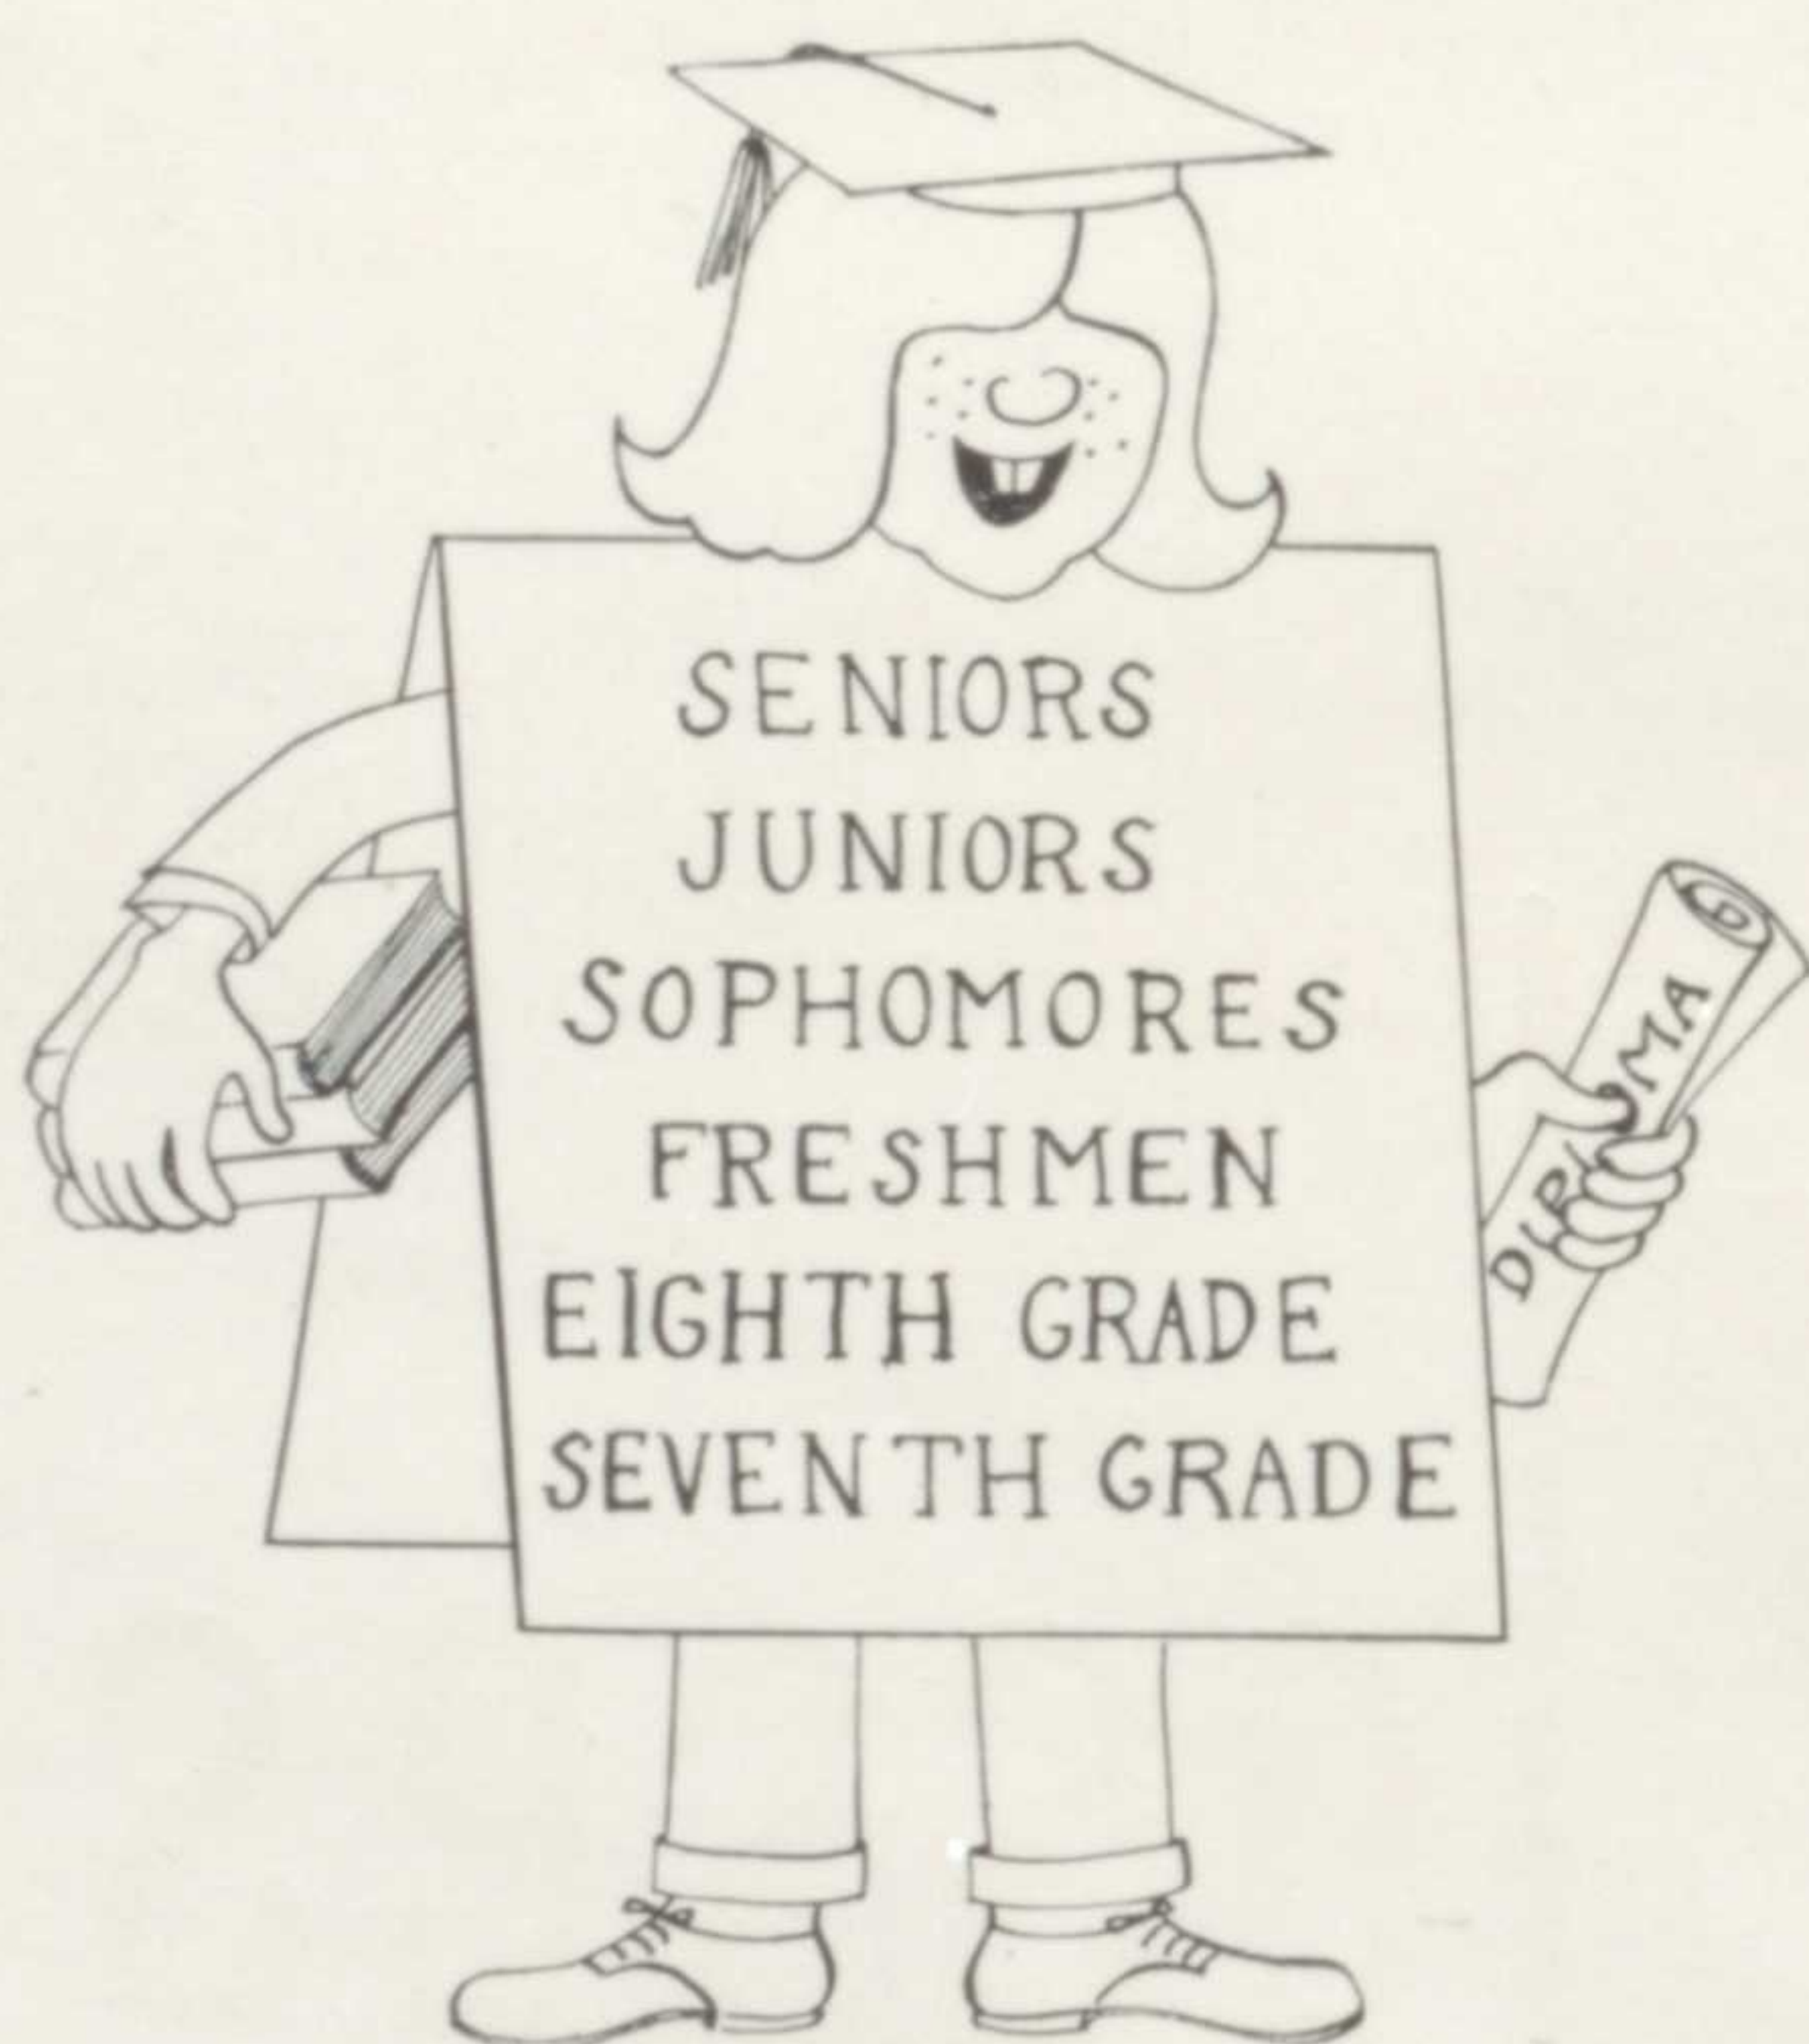 SENIORS
JUNIORS
SOPHOMORES
FRESHMEN
EIGHTH GRADE
SEVENTH GRADE
DIP MA